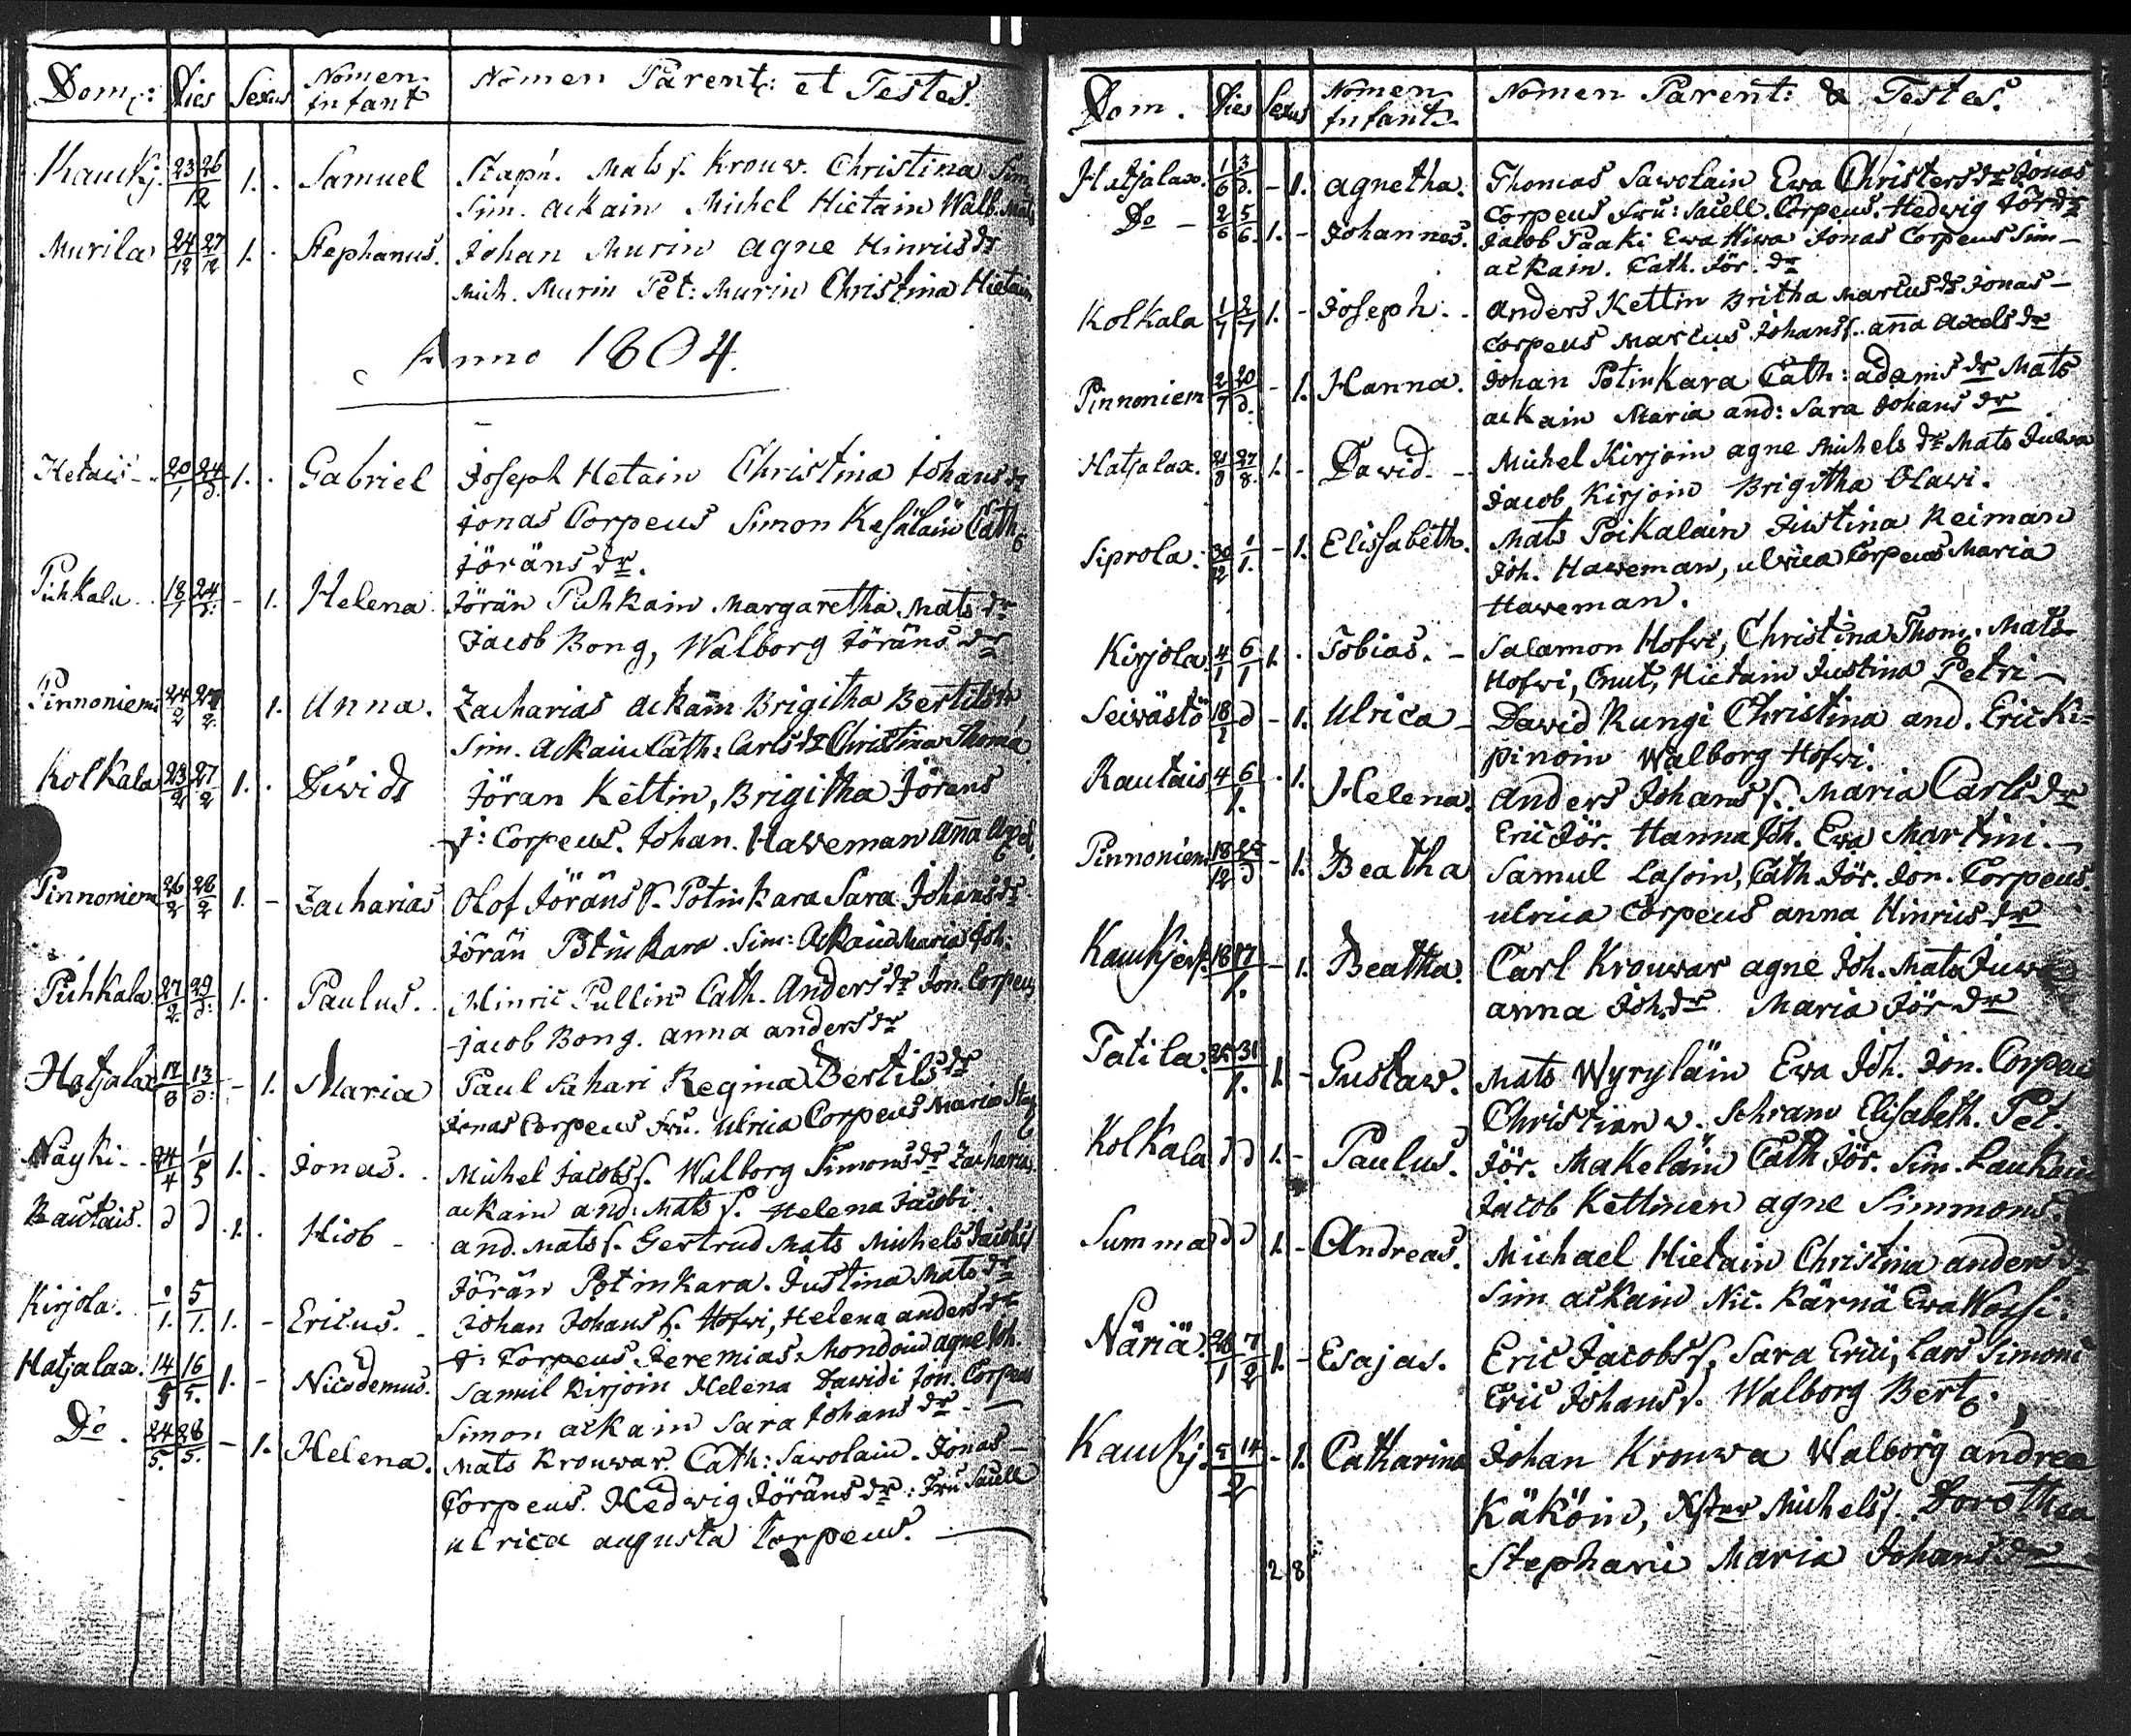 Dom: Dies Sexus Nomen Infant Nomen Parent: et Testes.
Kaukj. 23/12 26 1. Samuel Stapn. Mats s. Krouw. Christina Sim
Sim. Ackain Michel Hietain Walb. Mats
Murila 24/12 27/12 1. Stephanus. Johan Murin Agne Hinrics dr
Mich. Murin Pet: Murin Christina Hietain
Anno 1804.
Hetais 20/1 24/d. 1. Gabriel Joseph Hetain Christina Johans dr
Jonas Corpeus Simon Kesäläin Cath:
Jöräns dr.
Puhkala 18/1 24/d. - 1. Helena Jörän Puhkain Margaretha Mats dr
Jacob Bong, Walborg Jöräns dr
Pinnoniem 24/2 1. Anna. Zacharias Ackain Brigitha Bertils dr
Sim. Ackain Cath: Carls dr Christina Thomæ
Kolkala 23/2 27/2 1. Dawids Jöran Kettin, Brigitha Jörans
J: Corpeus. Johan. Haweman Anna Axels.
Pinnoniem 26/2 28/2 1. - Zacharias Olof Jöräns s. Potinkara Sara Johans dr
Jörän Potinkara. Sim: Ackain Maria Joh:
Puhkala 27/2. 29/d: 1. Paulus. Hinric Pullin Cath. Anders dr Jon. Corpeus
Jacob Bong. Anna Anders dr
Hatjalax 13/d: - 1. Maria Paul Sahari Regina Bertils dr
Jonas Corpeus Fru. Ulrica Corpeus Maria
Näyki 24/4 1/5 1. Jonas. Michel Jacobs s. Walborg Simons dr Zacharias
Ackain And: Mats s. Helena Jacobi
Rautais. d d 1. Hiob - And. Mats s. Gertrud Mats Michels Jacobs
Jörän Potinkara. Justina Mats dr
Kirjola. 1/1. 5/1. 1. - Ericus. Johan Johans s. Hofwi, Helena Anders dr
J: Corpeus Jeremias Mondoin Agne Joh.
Hatjalax. 14/5 16/5. 1. - Nicodemus. Samul Kirjoin Helena Dawidi Jon. Corpeus
Simon Ackain Sara Johans dr -
Do. 24/5. 28/5. - 1. Helena. Mats Krouwar. Cath: Sawolain. Jonas -
Corpeus. Hedwig Jöräns dr: Fru Sacell
Ulrica Augusta Corpeus.
Dom. Dies Sexus Nomen Infant: Nomen Parent: & Testes.
Hatjalax. 1/6 3/d. - 1. Agnetha. Thomas Sawolain Ewa Christers dr Jonas
Corpeus Fru: Sacell. Corpeus. Hedwig Jör dr
Do - 2/6 5/6. 1. - Johannes. Jacob Paaki Ewa Hiwa Jonas Corpeus Sim -
Ackain. Cath. Jör. dr
Kolkala 1/7 2/7 1. - Joseph. Anders Kettin Britha Marcus dr Jonas -
Corpeus Marcus Johans s. Anna Axels dr
Pinnoniem 2/7 20/d. - 1. Hanna. Johan Potinkara Cath: Adams dr Mats
Ackain Maria And: Sara Johans dr
Hatjalax. 21/8 27/8. 1. - Dawid. - Michel Kirjoin Agne Michels dr Mats Juwa
Jacob Kirjoin Brigitha Olawi.
Siprola: 30/12 1/1. - 1. Elissabeth. Mats Poikalain Justina Reiman
Joh. Haweman, Ulrica Corpeus Maria
Haweman.
Kirjola 4/1 6/1 1. Tobias. - Salamon Hofwi, Christina Thom. Mats
Hofwi, Cnut, Hietain Justina Petri -
Seiwästö 18/1 d - 1. Ulrica - Dawid Rungi Christina And. Eric Ki=
pinoin Walborg Hofwi.
Rautais 4 6/1. 1. Helena. Anders Johans s. Maria Carls dr
Eric Jör. Hanna Joh. Ewa Martini. -
Pinnoniem 18/12 25/d - 1. Beatha Samul Lasoin, Cath. Jör. Jon. Corpeus.
Ulrica Corpeus Anna Hinrics dr
Kaukjerf. 16 17/1. - 1. Beatha. Carl Krouwar Agne Joh. Mats Juwa
Anna Joh. dr Maria Jör dr
Tatila. 25 31/1. 1. - Gustaw. Mats Wyryläin Ewa Joh. Jon. Corpeus
Christian v. Schram Elisabeth. Pet.
Kolkala d d 1. - Paulus. Jör. Makeläin Cath Jör. Sim.
Jacob Kettinen Agne Simmons.
Summa d d 1. - Andreas. Michael Hietain Christina Anders dr
Sim Ackain Nic. Kärnä Ewa
Näriä. 28/1 7/2 1. - Esajas. Eric Jacobs s. Sara Erici, Lars Simoni
Eric Johans s. Walborg Bert:
Kaukj. 5 14/2 - 1. Catharina Johan Krouwa Walborg Andrea
Käköin, Xster Michels s. Dorothea
Stephani Maria Johans dr
2 8